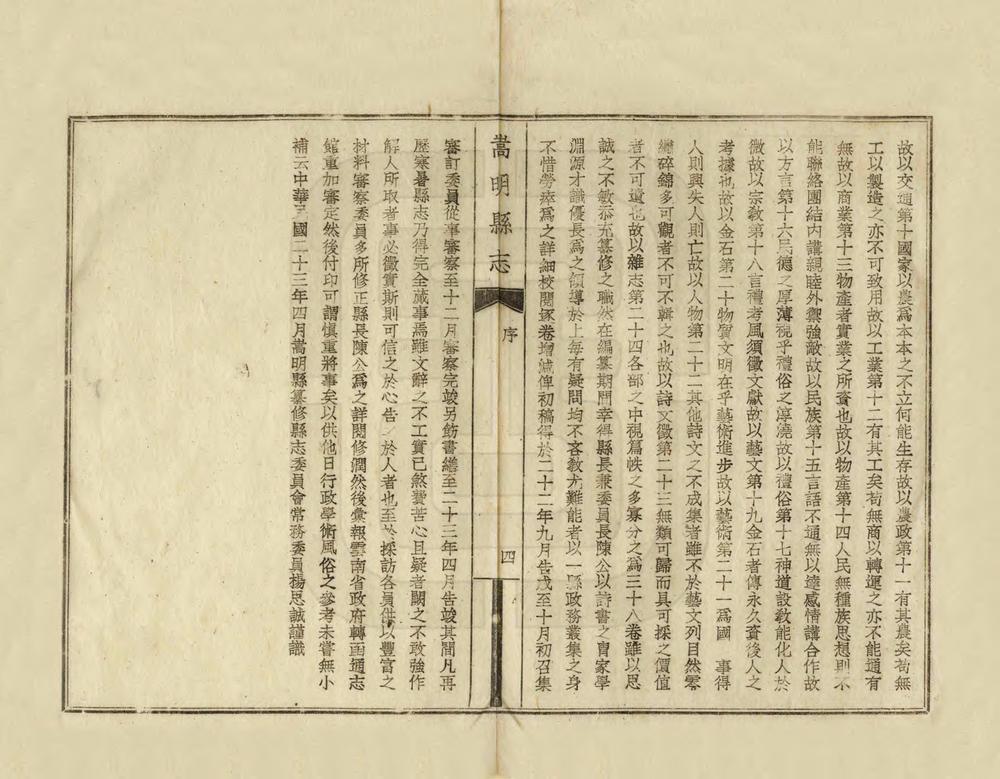 故以交通第十國家以農爲本本之不立何能生存故以農政第十一有其農矣苟無
工以製造之亦不可致用故以工業第十二有其工矣苟無商以轉運之亦不能通有
無故以商業第十三物產者實業之所資也故以物產第十四人民無種族思想則不
能聯絡團結內講親睦外禦強敵故以民族第十五言語不通無以達感情講合作故
以方言第十六民德之厚薄視乎禮俗之淳澆故以禮俗第十七神道設敎能化人於
微故以宗敎第十八言禮考風須徵文獻故以藝文第十九金石者傳永久資後人之
考據也故以金石第二十物質文明在乎藝術進步故以藝術第二十一爲國 事得
人則興失人則亡故以人物第二十二其他詩文之不成集者雖不於藝文列目然零
縑碎錦多可觀者不可不輯之也故以詩文徵第二十三無類可歸而具可採之價值
者不可遺也故以雜志第二十四各部之中視篇帙之多寡分之爲三十八卷雖以思
誠之不敏忝充纂修之職然在編纂期間幸得縣長兼委員長陳公以詩書之胄家學
淵源才識優長爲之領導於上每有疑問均不吝敎尤難能者以一縣政務叢集之身
不惜勞瘁爲之詳細校閱逐卷增減俾初稿得於二十二年九月告成至十月初召集
嵩明縣志
序
四
審訂委員從事審察至十二月審察完竣另飭書繕至二十三年四月告竣其間凡再
歷寒暑縣志乃得完全蕆事焉雖文辭之不工實已煞費苦心且疑者闕之不敢強作
解人所取者事必徵實斯則可信之於心告 於人者也至於採訪各員供以豐富之
材料審察委員多所修正縣長陳公爲之詳閱修潤然後彙報雲南省政府轉函通志
館重加審定然後付印可謂愼重將事矣以供他日行政學術風俗之參考未嘗無小
補云中華民國二十三年四月嵩明縣纂修縣志委員會常務委員楊思誠謹識